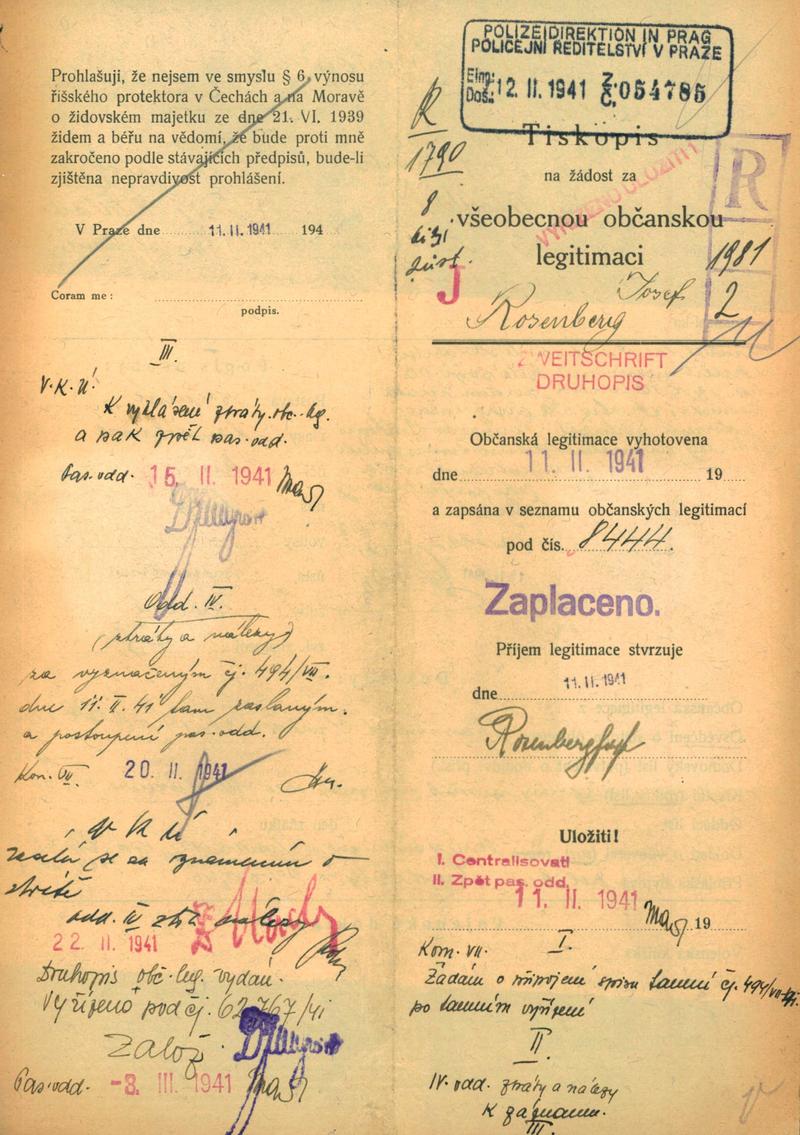 Prohlašuji, že nejsem ve smyslu § 6 výnosu
říšského protektora v Čechách a na Moravě
o židovském majetku ze dne 21. VI. 1939
židem a béřu na vědomí, že bude proti mně
zakročeno podle stávajících předpisů, bude-li
zjištěna nepravdivost prohlášení.
V Praze dne 11. II. 1941 194
Coram me :
podpis.
III.
V. K. Ú.
K vyhlášení ztráty obč. leg.
a pak zpět pas. odd.
Pas. odd. 15. II. 1941
Odd. IV.
(ztráty a nálezy)
za vyznačeným čj. 494/VII.
dne 11. II. 41 tam zaslaným.
a postoupení pas. odd.
Kom. VII. 20. II. 1941
V K Ú
se za
odd. IV
22. II. 1941
Druhopis obč. leg. vydán.
Vyřízeno pod čj. 62767/41
Založ
Pas. odd. -3. III. 1941
POLIZEIDIREKTION IN PRAG
POLICEJNÍ ŘEDITELSTVÍ V PRAZE
Eing.:
Doš.: 12. II. 1941 Z. Č. 054785
R
1790
8
Tiskopis
na žádost za
všeobecnou občanskou
legitimaci
VYŘÍZENO ULOŽITI!
R
1981
2
J
Josef
Rosenberg
ZWEITSCHRIFT
DRUHOPIS
Občanská legitimace vyhotovena
dne 11. II. 1941 19
a zapsána v seznamu občanských legitimací
pod čís. 8444.
Zaplaceno.
Příjem legitimace stvrzuje
dne 11. II. 1941
Rosenberg
Uložiti!
I. Centralisovati
II. Zpět pas. odd.
11. II. 1941 19
Kom. VII. I.
Žádám o připojení spisu tamní čj. 494/VII-41
po tamním vyřízení
II.
IV. odd. ztráty a nálezy
K záznamu.
III.